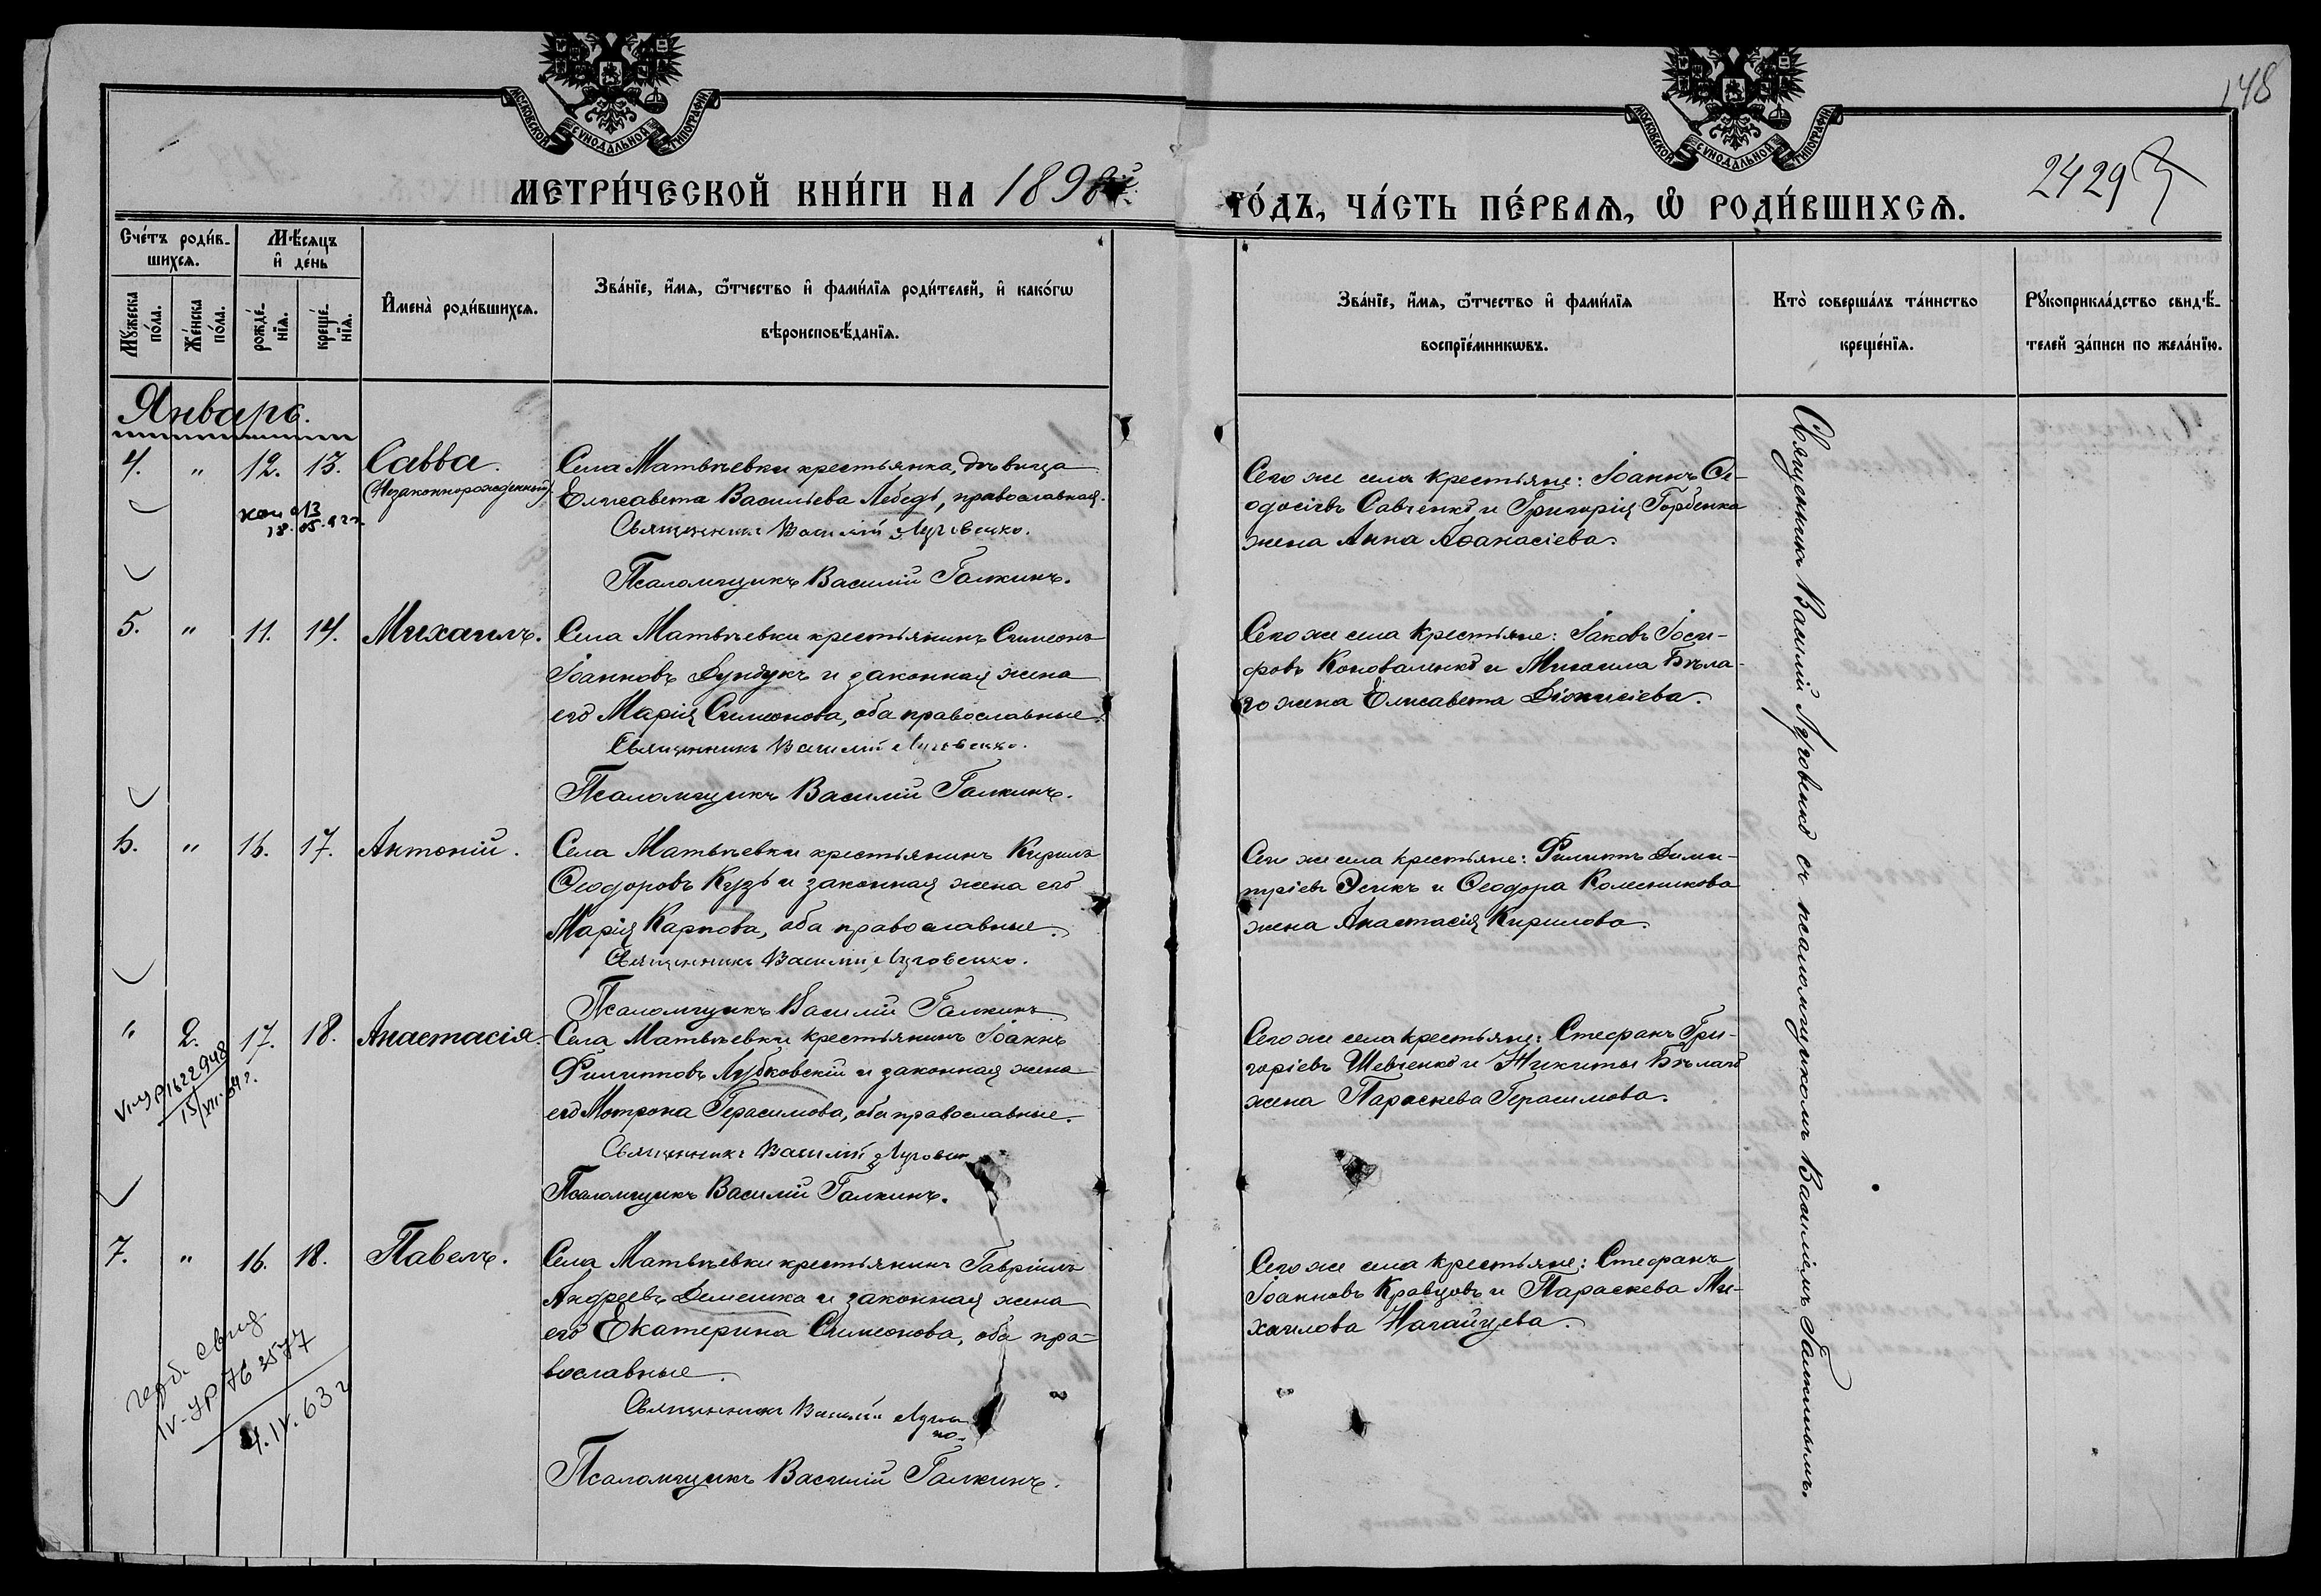 148
МОСКОВСКОЙ СѴНОДАЛЬНОЙ ТИПОГРАФІИ
МОСКОВСКОЙ СѴНОДАЛЬНОЙ ТИПОГРАФІИ
МЕТРИ́ЧЕСКОЙ КНИ́ГИ НА 1898й
ГО́ДЪ, ЧА́СТЬ ПЕ́РВАѦ, Ѡ РОДИ́ВШИХСѦ.
2429
Сче́тъ роди́в-
шихсѧ.
Мѣ́сѧцъ
и҆ де́нь
Мꙋ́жеска
по́ла.
Же́нска
по́ла.
рожде́-
нїѧ.
креще́-
нїѧ.
И҆мена̀ роди́вшихсѧ.
Зва́нїе, и҆́мѧ, ѻ҆́тчество и҆ фами́лїѧ роди́телей, и҆ како́гѡ
вѣроисповѣ́данїѧ.
Зва́нїе, и҆́мѧ, ѻ҆́тчество и҆ фами́лїѧ
воспрїе́мникѡвъ.
Кто̀ соверша́лъ та́инство
креще́нїѧ.
Рꙋкоприкла́дство свидѣ́-
телей за́писи по жела́нїю.
Январь.
4. " 12. 13. Савва.
(Незаконнорожденный)
Села Матвѣевки крестьянка, дѣвица
Елисавета Васильева Лебедь, православная.
Священникъ Василій Луговенко.
Псаломщикъ Василій Галкинъ.
Сего же села крестьяне: Іоаннъ Ѳе-
одосіевъ Савченко и Григорія Горбенка
жена Анна Аѳанасіева.
5. " 11. 14. Михаилъ.
Села Матвѣевки крестьянинъ Симеонъ
Іоанновъ Дундукъ и законная жена
его Марія Симеонова, оба православные.
Священникъ Василій Луговенко.
Псаломщикъ Василій Галкинъ.
Сего же села крестьяне: Іаковъ Іоси-
фовъ Коноваленко и Михаила Бѣла-
го жена Елисавета Діонисіева.
6. " 16. 17. Антоній.
Села Матвѣевки крестьянинъ Кирилъ
Ѳеодоровъ Кузь и законная жена его
Марія Карпова, оба православные.
Священникъ Василій Луговенко.
Псаломщикъ Василій Галкинъ
Сего же села крестьяне: Филиппъ Дими-
тріевъ Эсикъ и Ѳеодора Колесникова
жена Анастасія Кирилова.
" 2. 17. 18. Анастасія.
VI-УР 1622948
15/XII-59 г.
Села Матвѣевки крестьянинъ Іоаннъ
Филипповъ Лубковскій и законная жена
его Мотрона Герасимова, оба православные.
Священникъ Василій Луговен
Псаломщикъ Василій Галкинъ.
Сего же села крестьяне: Стефанъ Гри-
горіевъ Шевченко и Никиты Бѣлаго
жена Параскева Герасимова.
7. " 16. 18. Павелъ.
IV-УР 76 2577
4.IV.63 г
Села Матвѣевки крестьянинъ Гавріилъ
Андреевъ Демешка и законная жена
его Екатерина Симеонова, оба пра-
вославные.
Священникъ Василій Лугов
ко.
Псаломщикъ Василій Галкинъ.
Сего же села крестьяне: Стефанъ
Іоанновъ Кравцовъ и Параскева Ми-
хаилова Нагайцева.
Священникъ Василій Луговенко съ псаломщикомъ Василіемъ Галкинымъ.